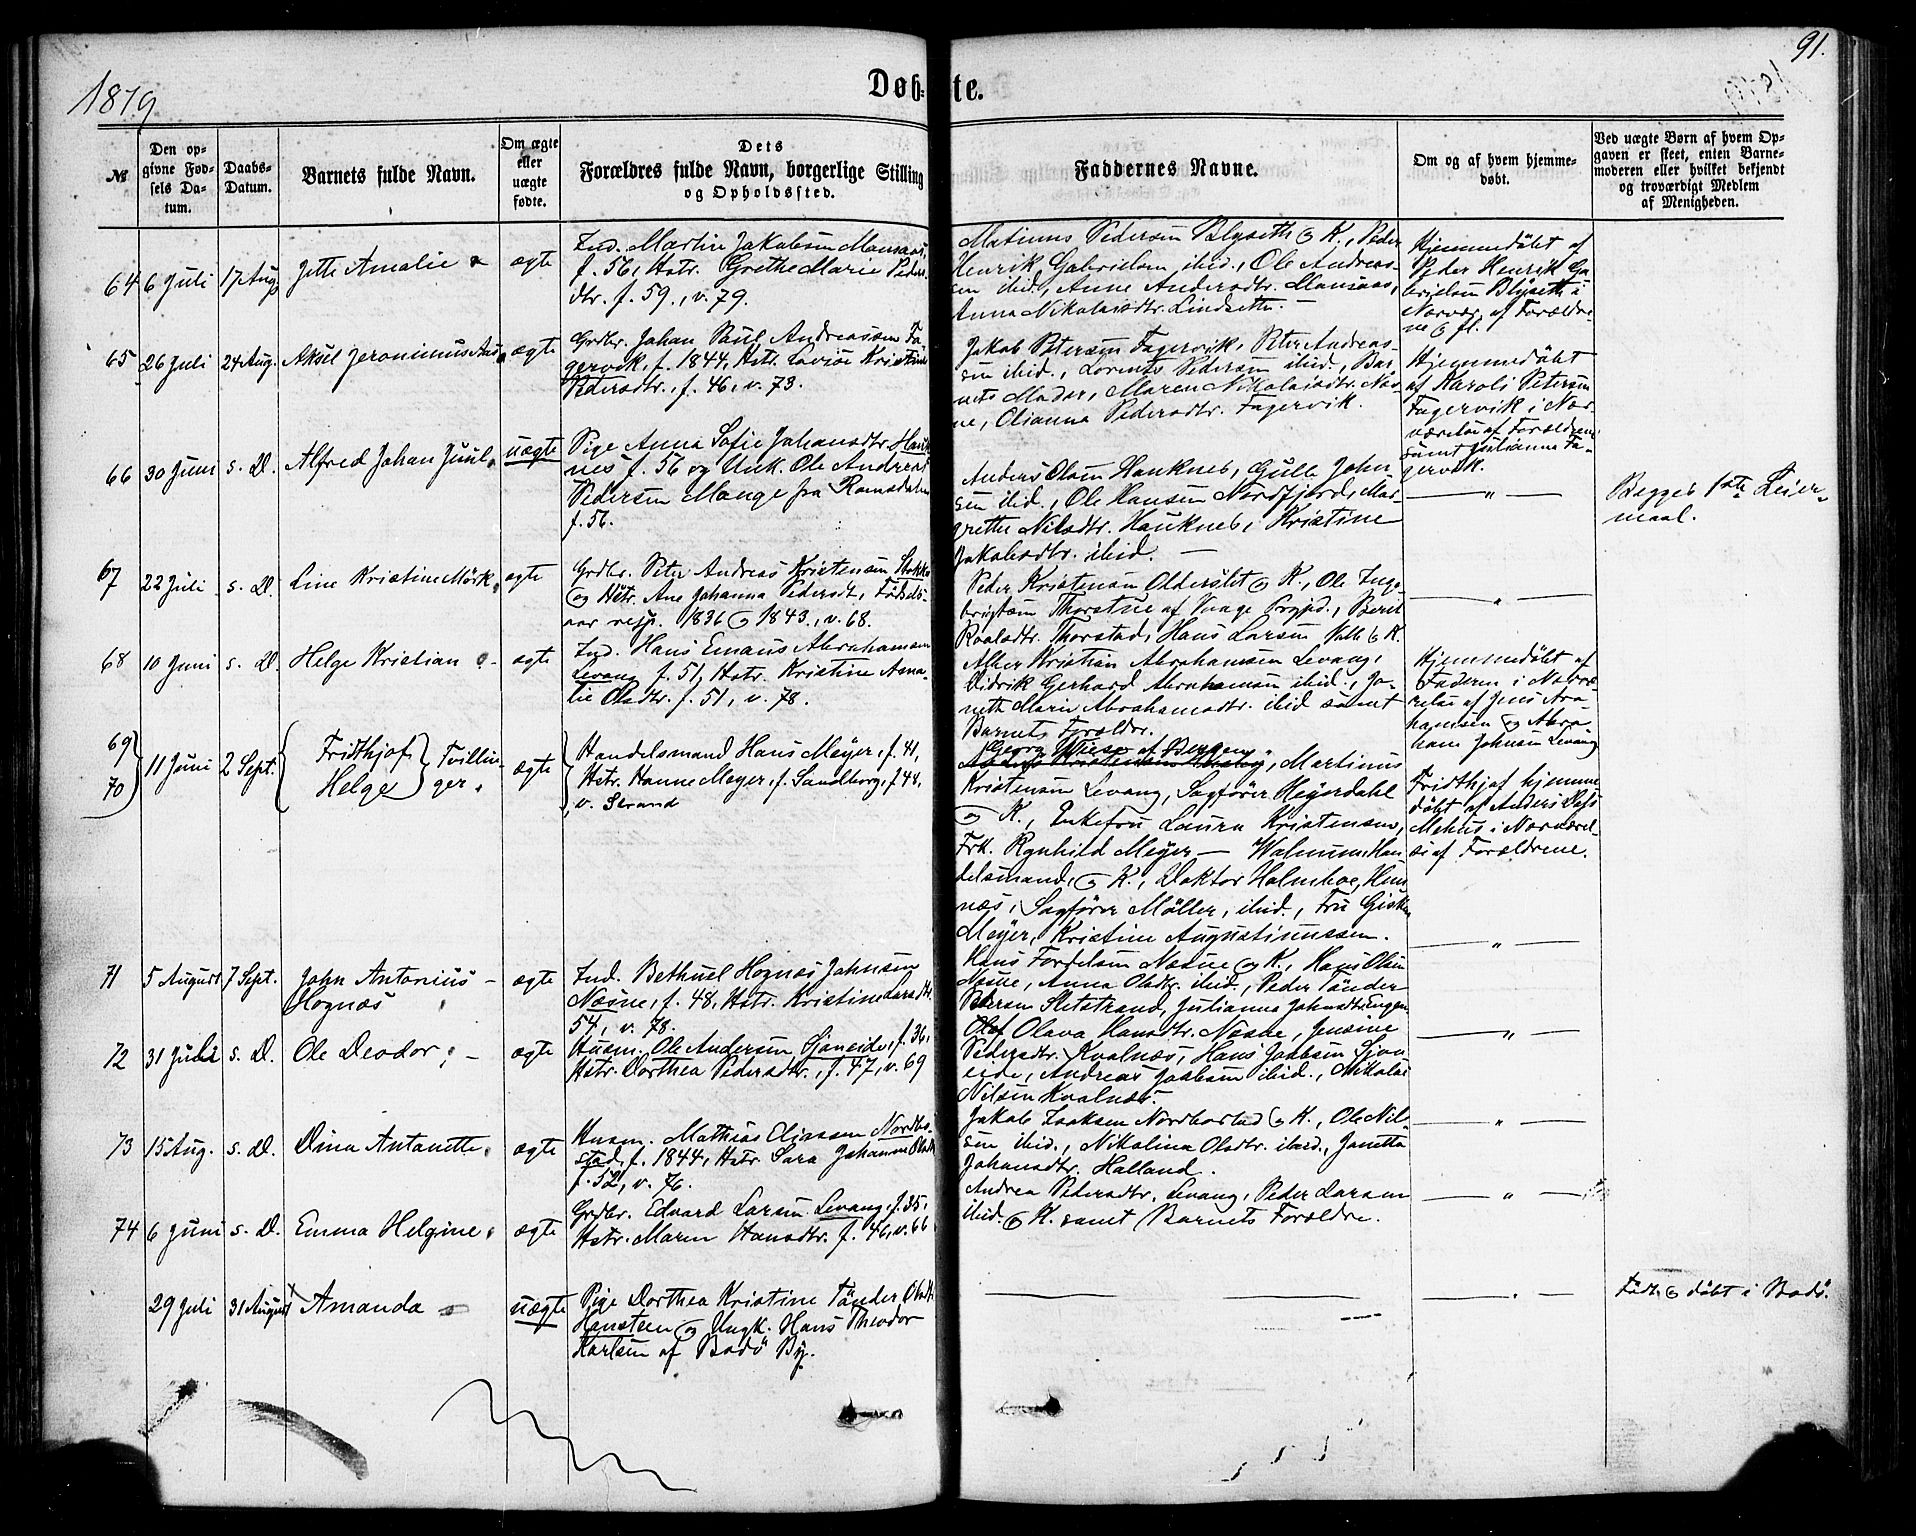 1879
Døb-te.
91.
№
Den op-
givne Fød-
sels Da-
tum.
Daabs-
Datum.
Barnets fulde Navn.
Om ægte
eller
uægte
fødte.
Dets
Forældres fulde Navn, borgerlige Stilling
og Opholdssted.
Faddernes Navne.
Om og af hvem hjemme-
døbt.
Ved uægte Børn af hvem Op-
gaven er skeet, enten Barne-
moderen eller hvilket bekjendt
og troværdigt Medlem
af Menigheden.
64 6 Juli 17 Aug. Jette Amalie ægte
Ind. Martin Jakobsen
f. 56, Hstr. Grethe Marie Peders-
dtr. f. 59., v. 79.
Matinus Pedersen Blyseth & K., Peder
Henrik Gabrielsen ibid., Ole Andreas-
sen ibid., Anne Andersdtr.
Anna Nikolaisdtr. Lindseth.
Hjemmedöbt af
Peder Henrik Ga-
brielsen Blyseth i
Nærvær. af Forældre-
ne & fl.
65 26 Juli 24 Aug. Aksel Jeronimus ægte
Grdbr. Johan Paul Andreassen Fa-
gervik, f. 1844, Hstr. Lovise Kristine
Pedersdtr., f. 46, v. 73.
Jakob Petersen Fagervik, Peter Andreas-
sen ibid., Lorents Pedersen ibid., Bar-
nets Moder, Maren Nikolaisdtr. Næs-
ne, Olianna Pedersdtr. Fagervik.
Hjemmedöbt
af Karoli Petersen
Fagervik i Nær-
værelse af Forældrene
samt Julianne Fa-
gervik.
66 30 Juni s. D. Alfred Johan Juul uægte
Pige Anna Sofie Johansdtr. Hauk-
nes f. 56 og Unk. Ole Andreas
Pedersen Mange fra Romsdalen
f. 56.
Anders Olsen Hauknes, Gulle John-
sen ibid., Ole Hansen Nordfjord, Mar-
grethe Nilsdtr. Hauknes, Kristine
Jakobsdtr. ibid.
— " —
Begges 1ste Leier-
maal.
67 22 Juli s. D. Line Kristine Mörk ægte
Grdbr. Peter Andreas Kristensen Stokke
& Hstr. Ane Johanna Pedersdt., Fødsels-
aar resp. 1836 & 1843., v. 68.
Peder Kristensen Olderslet & K., Ole Inge-
brigtsen Thorstue af Vaage Prgjd., Berit
Roalsdtr. Thorstad, Hans Larsen & K.
— " —
68 10 Juni s. D. Helge Kristian ægte
Ind. Hans Emaus Abrahamsen
Levang f. 51, Hstr. Kristine Ama-
lie Olsdtr. f. 51, v. 78.
Alber Kristian Abrahamsen Levang,
Didrik Gerhard Abrahamsen ibid., Ja-
neth Marie Abrahamsdtr. ibid samt
Barnets Forældre.
Hjemmedöbt af
Faderen i Nærvæ-
relse af Jens Abra-
hamsen & Abra-
ham Johnsen Levang
69
70 11 Juni 2 Sept. Fridthjof
Helge Tvillin-
ger. ægte
Handelsmand Hans Meyer, f. 41,
Hstr. Hanne Meyer, f. Sandborg, f 48,
v. Strand
Georg Wiese af Bergen,
Martinus
Kristensen Levang, Sagförer Heyerdahl
& K., Enkefru Laura Kristensen,
Frk. Rynhild Meyer — Walnum, Han-
delsmand, & K., Doktor Holmboe, Hem-
næs, Sagförer Möller, ibid., Fru Gisken
Meyer, Kristine Augustinussen.
Fridthjof hjemme-
döbt af Anders Dass
Mehus i Nærværel-
se af Forældrene.
— " —
71 5 August 7 Sept. John Antonius
Hognæs ægte
Ind. Bethuel Hognæs Johnsen
Næsne, f. 48, Hstr. Kristine Larsdtr.
54, v. 78.
Hans Fordelsen Næsne & K., Hans Olsen
Næsne, Anna Olsdtr. ibid., Peder Tönder
Petersen Sletstrand, Julianna Johnsdtr. Engen
72 31 Juli s. D. Ole Deodor ægte
Husm. Ole Andersen Sjoneide, f. 36,
Hstr. Dorthea Pedersdtr., f. 47, v. 69
Olava Hansdtr. Næsne, Jensine
Pedersdtr. Kvalnæs, Hans Jakobsen Sjon-
eide, Andreas Jakobsen ibid., Nikolai
Nilsen Kvalnæs.
— " —
73 15 Aug. s. D. Dina Antonette ægte
Husm. Mathias Eliassen Nordbo-
stad, f. 1844, Hstr. Sara Johanna Olsdtr.
f. 52, v. 76.
Jakob Isaksen Nordbostad & K., Ole Nil-
sen ibid., Nikolina Olsdtr. ibid., Janetta
Johansdtr. Halland.
— " —
74 6 Juni s. D. Emma Helgine ægte
Grdbr. Edvard Larsen Levang, f. 35,
Hstr. Maren Hansdtr. f. 46, v. 66
Andrea Pedersdtr. Levang, Peder Larsen
ibid. & K. samt Barnets Forældre.
— " —
29 Juli 31 August Amanda uægte
Pige Dorthea Kristine Tönder Olsdt.
Hansteen & Ungk. Hans Theodor
Karlsen af Bodö By.
Födt & döbt i Bodö.